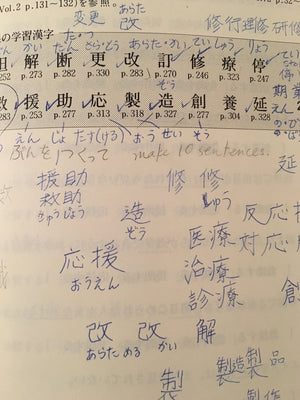 Vol.2 p.131~132)を参照。
変更 改 あらた
修行理修研修
の学習漢字
かい だん とう こう あらた・かい てい しゅう りょう てい
解 断 更 改 訂 修 療 停
p.252 p.282 p.223 p.270 p.246 p.330 p.232
ぞう
援 助 応 製 造 創 養 延
p.277 p.253 p.313 p.318 p.327 p.296 p.304 p.328
えん じょ たす(ける) おう せい ぞう
ぶんを1つくって make 10 sentences.
援助
救助
きゅうじょ
造
ぞう
修 修
しゅう
応援
おうえん
医療
治療
診療
反応
対応
改 改 解
あらためる かい
製
製造製品
製作